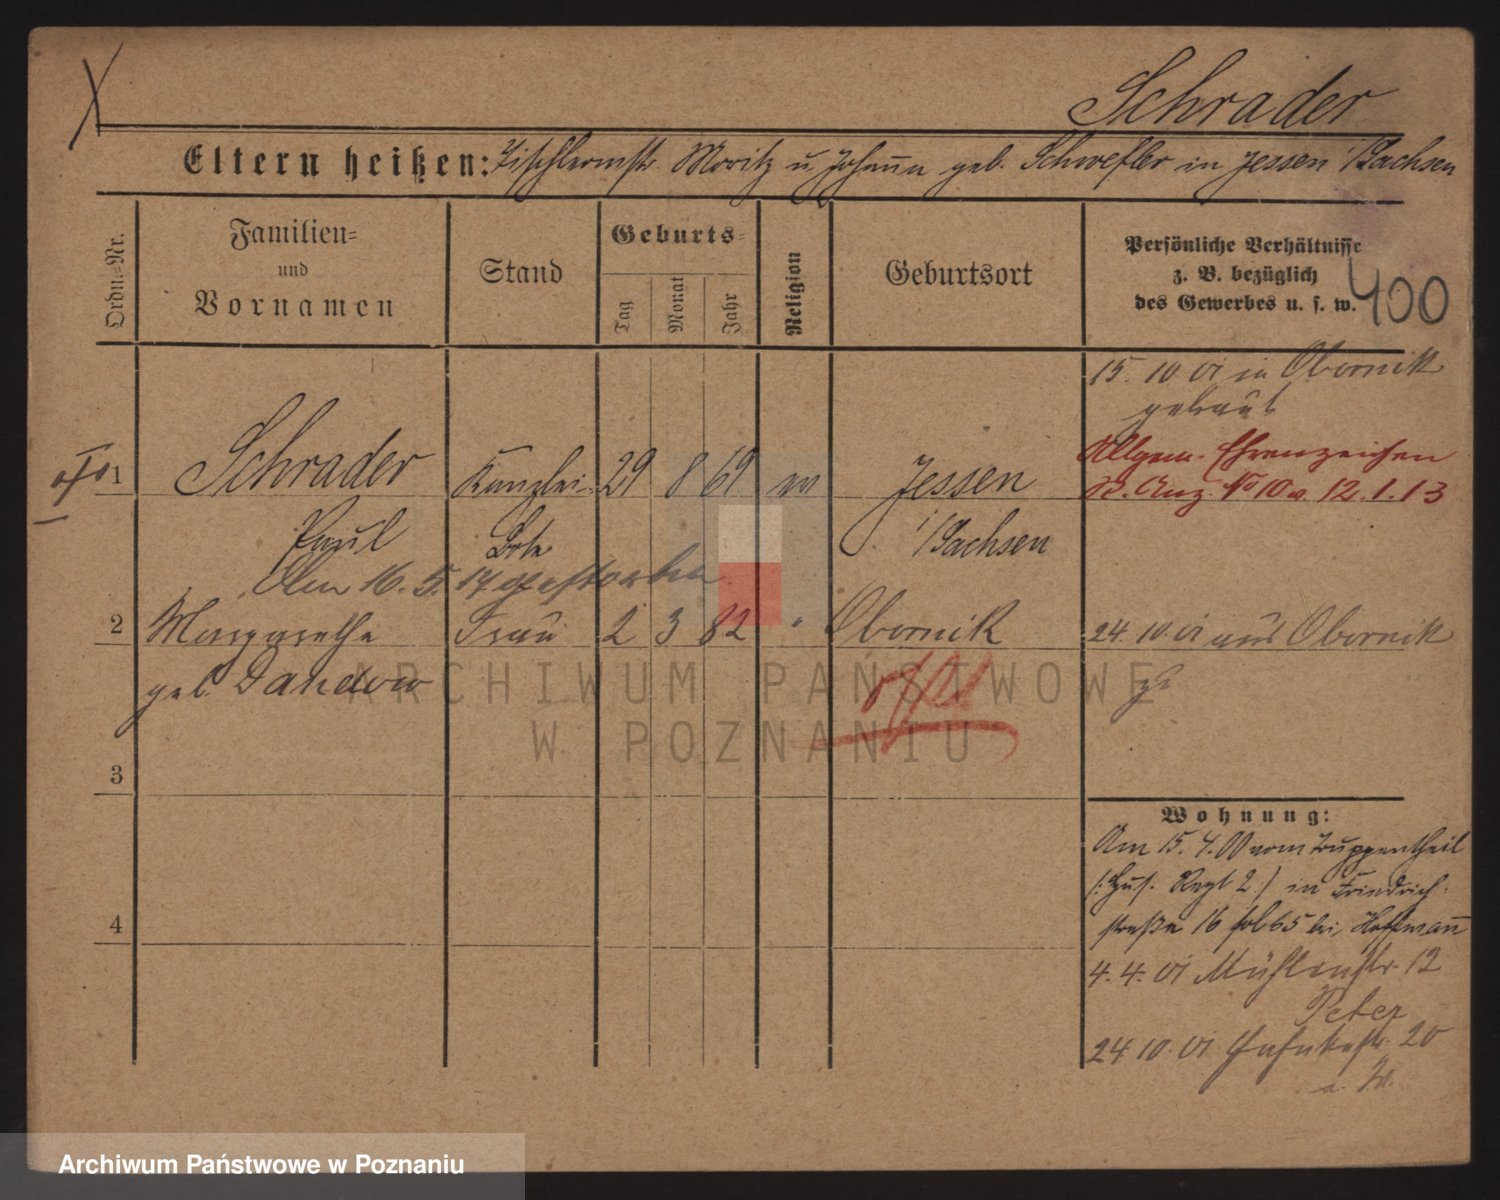 Schrader
Eltern heißen: Tischlermstr. Moritz u Johanna geb. Schwefler in Jessen i/Sachsen
Ordn.-Nr.
Familien-
und
Vornamen
Stand
Geburts-
Tag
Monat
Jahr
Religion
Geburtsort
Persönliche Verhältnisse
z. B. bezüglich
des Gewerbes u. s. w.
400
15. 10. 01 in Obornik
getraut
Allgem. Ehrenzeichen
St. Anz. No 10 v. 12.1.13
1 Schrader Kanzlei- 29 8 69 ev Jessen
Paul Bote i/Sachsen
Am 16. 5. 17 gestorben
2 Margarethe Frau 2 3 82 " Obornik 24. 10. 01 aus Obornik
geb. Dandow
3
4
Wohnung:
Am 15. 4. 00 vom Truppentheil
/: Hus. Regt 2 :/ in Friedrich-
straße 16 fol 65 bei Hoffmann
4. 4. 01 Mühlenstr. 12
Peter
24. 10. 01 20
ARCHIWUM PAŃSTWOWE
W POZNANIU
Archiwum Państwowe w Poznaniu